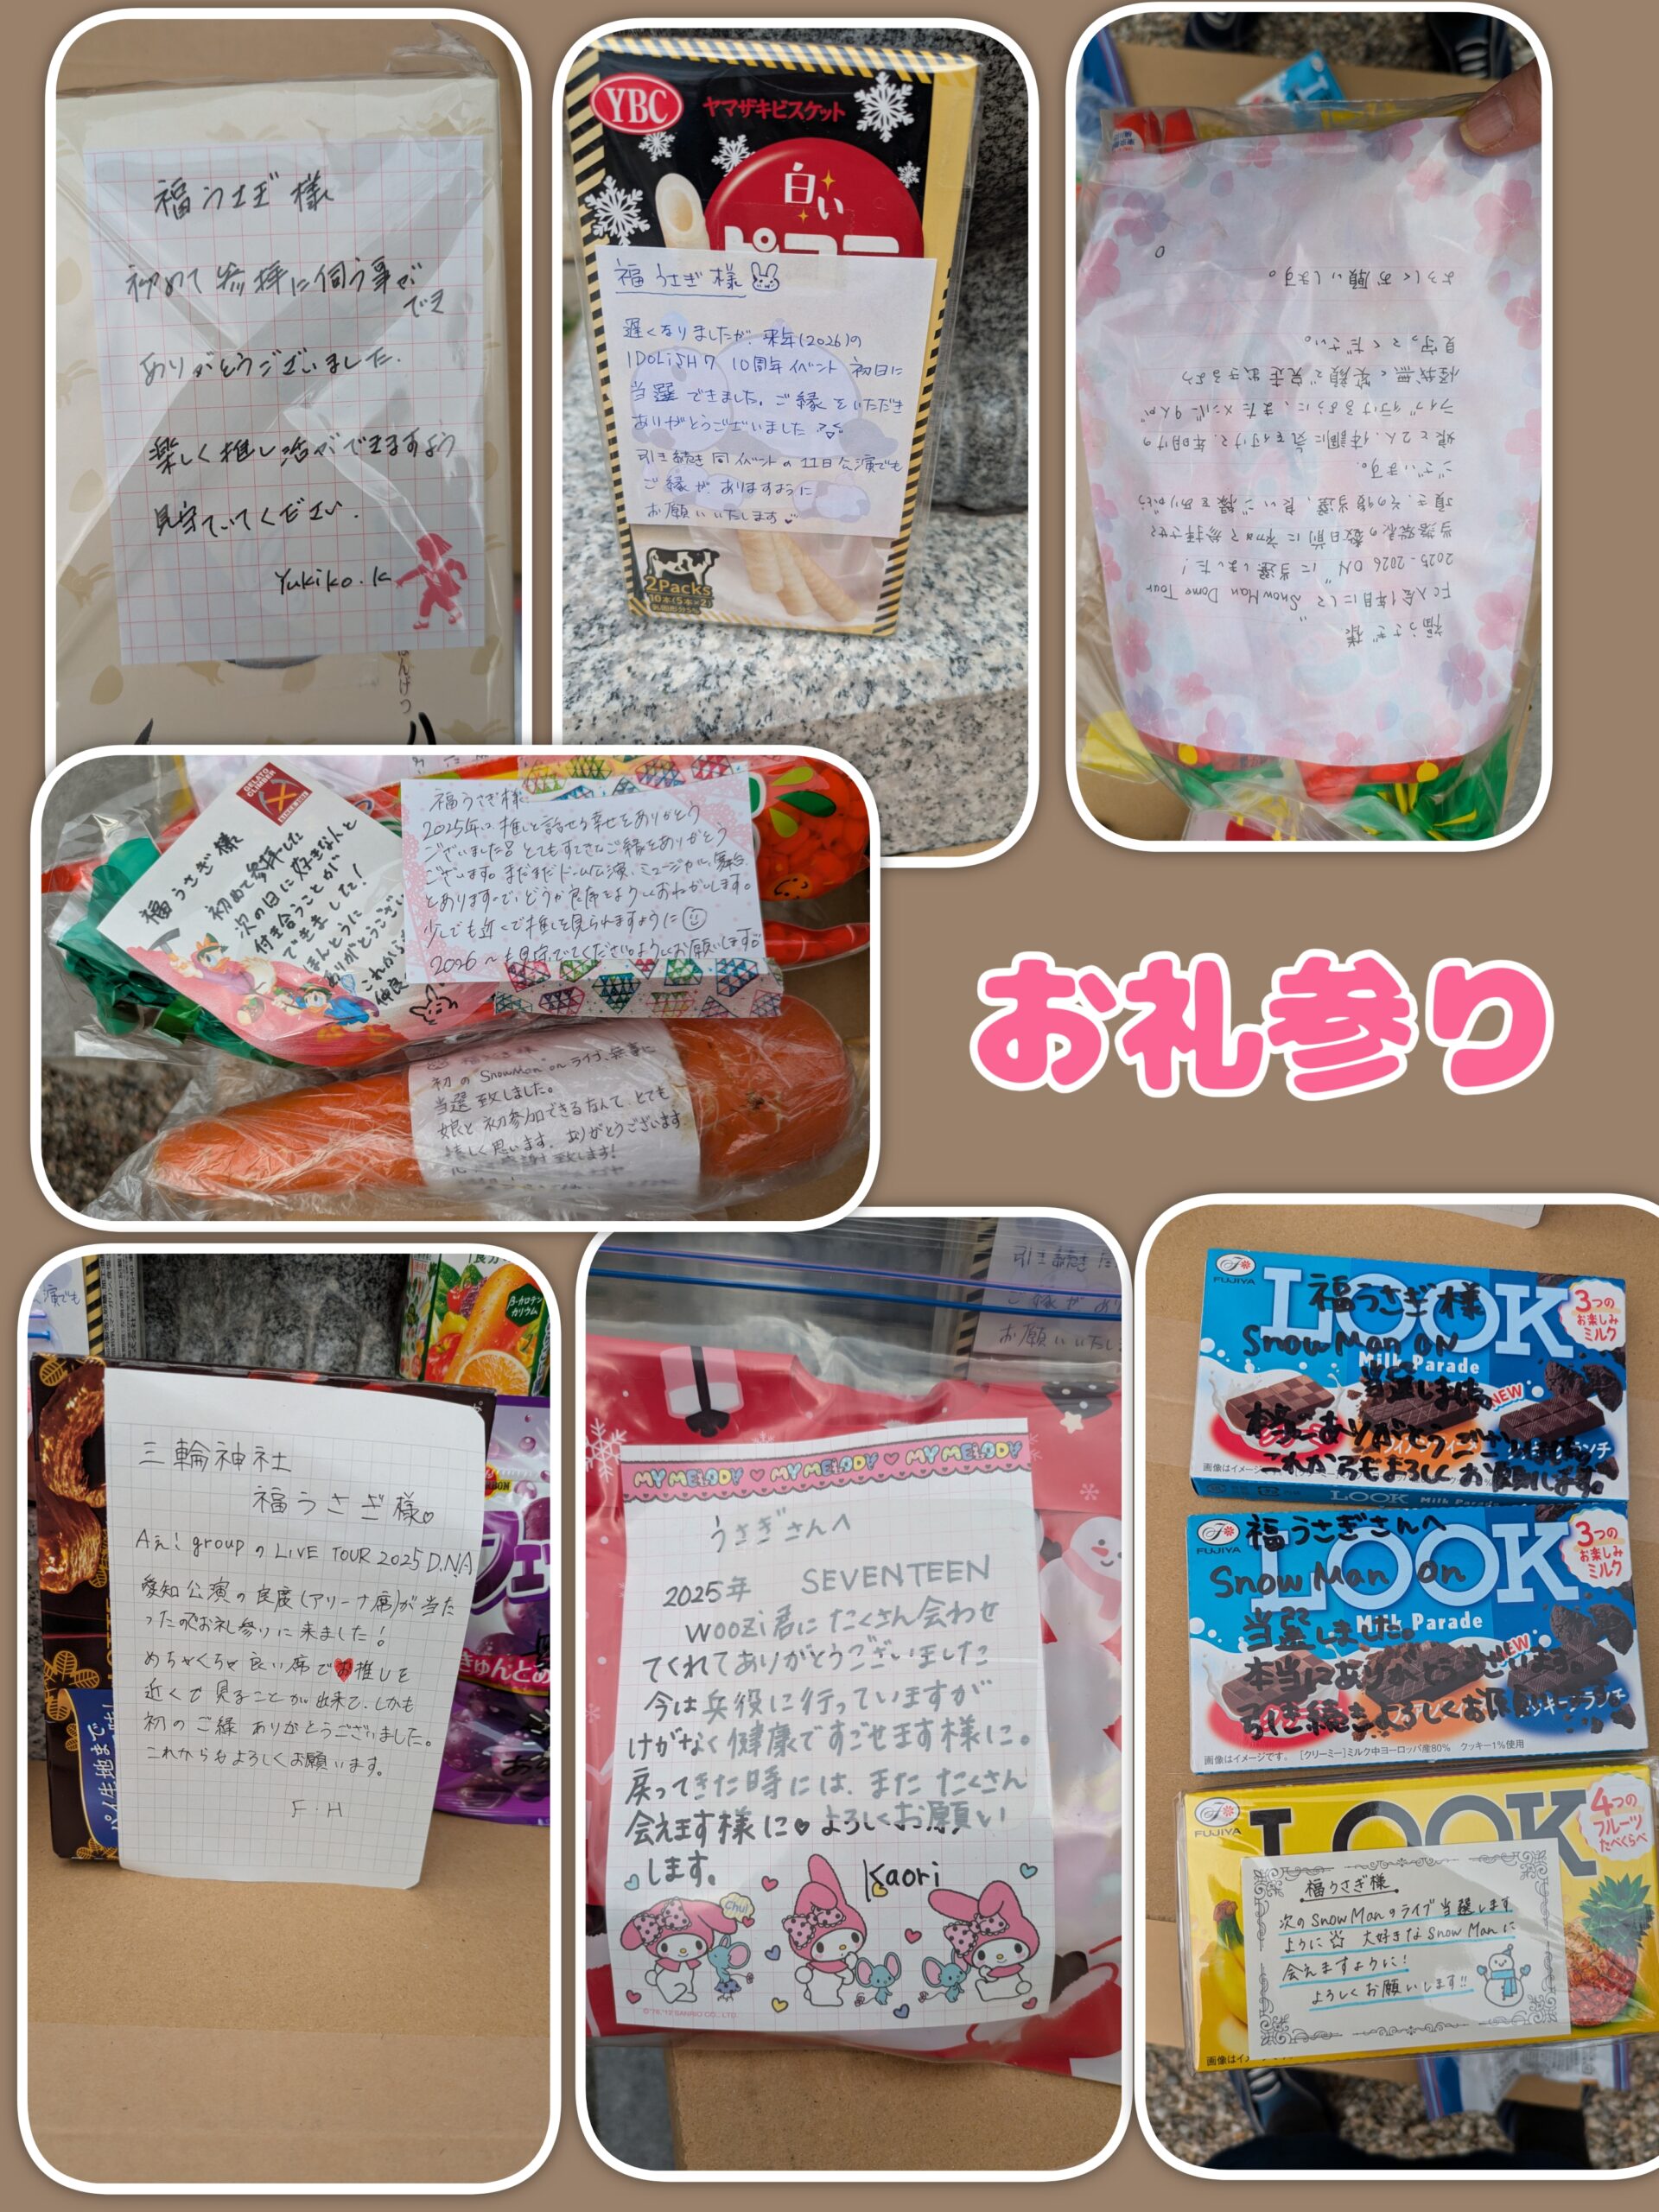 福うさぎ様
初めて参拝に伺う事が
でき
ありがとうございました.
楽しく推し活ができますよう
見守ていてください.
Yukiko.K
YBC
ヤマザキビスケット
白い
福うさぎ様
遅くなりましたが、来年(2026)の
IDOLiSH7 10周年イベント 初日に
当選できました。ご縁をいただき
ありがとうございました
引き続き同イベントの11日公演でも
ご縁がありますように
お願いいたします
2Packs
10本(5本×2)
福うさぎ様
FC入会1年目にして "Snow Man Dome Tour
2025-2026 ON" に当選しました!
当落発表の数日前に初めて参拝させて
頂き、その後当選、良いご縁をありがとう
ございます。
娘と2人、体調に気を付けて、年明けの
ライブ行けるように、またメンバー9人が
怪我無く笑顔で完走出きるよう
見守ってください。
よろしくお願いします。
GELATO
CLIMBER
福うさぎ様
初めて参拝した
次の日に好きな人と
付き合うことが
できました!
ほんとうに
ありがとうござい
これから
仲良
福うさぎ様
2025年は推しと話せる幸せをありがとう
ございました とてもすてきなご縁をありがとう
ございます。まだまだドーム公演、ミュージカル、舞台
とありますので、どうか良席をよろしくおねがいします。
少しでも近くで推しを見られますように
2026〜も見守っててください。よろしくお願いします。
初の SnowMan on ライブ、無事に
当選致しました。
娘と初参加できるなんて、とても
嬉しく思います。ありがとうございます
感謝致します!
お礼参り
β-カロテン
カリウム
三輪神社
福うさぎ様
Aぇ! groupのLIVE TOUR 2025 D.N.A
愛知公演の良席(アリーナ席)が当た
ったのでお礼参りに来ました!
めちゃくちゃ良い席でお推しを
近くで見ることが出来て、しかも
初のご縁ありがとうございました。
これからもよろしくお願います。
F.H
パイ生地まで
きゅんとめ
引き続き同
ご縁があり
お願いいたし
MY MELODY ♥ MY MELODY ♥ MY MELODY
うさぎさんへ
2025年 SEVENTEEN
WOOZi君にたくさん会わせ
てくれてありがとうございました
今は兵役に行っていますが
けがなく健康ですごせます様に。
戻ってきた時には、またたくさん
会えます様に♥よろしくお願い
します。
Kaori
Chu!
FUJIYA
LOOK
Milk Parade
3つの
お楽しみ
ミルク
NEW
福うさぎ様
Snow Man ON
当選しました
本当にありがとうございました
これからもよろしくお願いします。
LOOK Milk Parade
FUJIYA
LOOK
Milk Parade
3つの
お楽しみ
ミルク
NEW
福うさぎさんへ
Snow Man on
当選しました。
本当にありがとうございます。
引き続きよろしくお願
画像はイメージです。 [クリーミー]ミルク中ヨーロッパ産80% クッキー1%使用
FUJIYA
LOOK
4つの
フルーツ
たべくらべ
福うさぎ様
次のSnow Manのライブ当選します
ように 大好きなSnow Manに
会えますように!
よろしくお願いします!!
画像はイメ